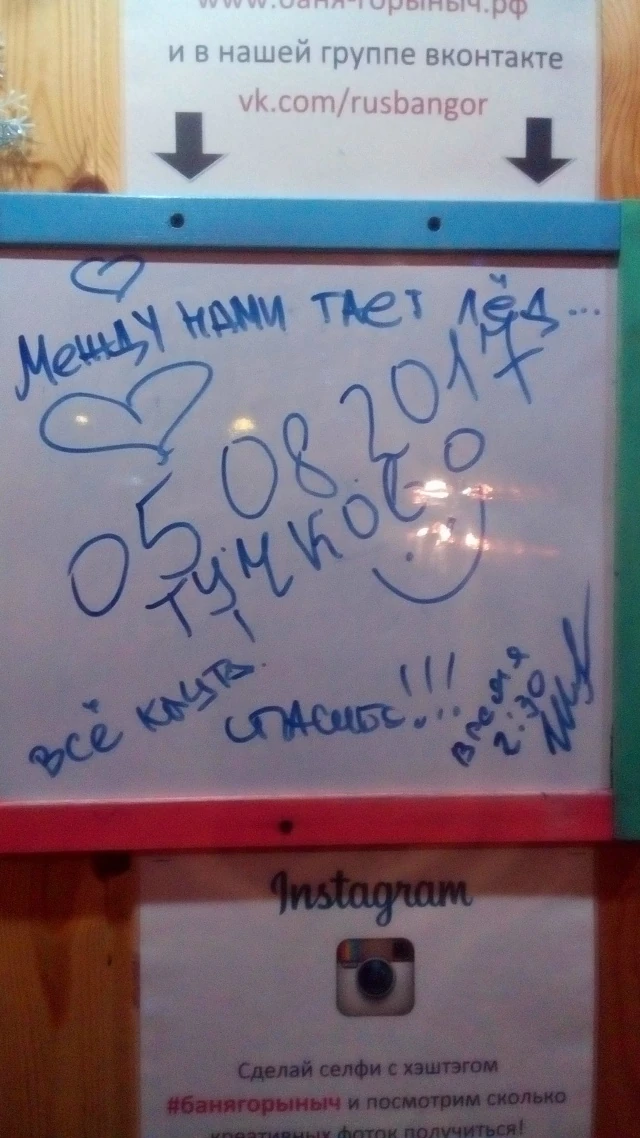 www.баня-горыныч.рф
и в нашей группе вконтакте
vk.com/rusbangor
Между нами тает лёд...
05.08.2017
Тучково
всё
Спасибо!!!
Время
2:30
Instagram
Сделай селфи с хэштэгом
#банягорыныч и посмотрим сколько
креативных фоток получиться!